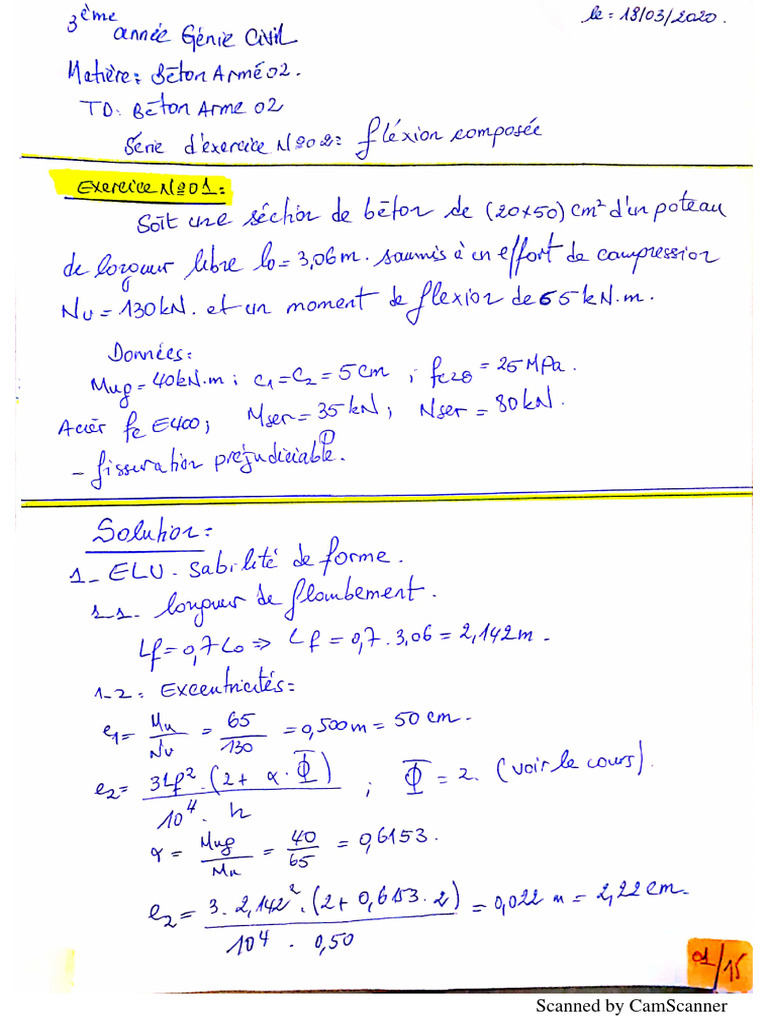 3ème année Génie Civil
le: 18/03/2020.
Matière: Béton Armé 02.
TD: Béton Arme 02
Série d'exercice N°02: fléxion composée
Exercice N°01:
Soit une séction de bêton de (20x50) cm² d'un poteau
de longueur libre l0 = 3,06 m. saumis à un effort de compression
Nu = 130 kN. et un moment de flexion de 65 kN.m.
Données:
Mug = 40 kN.m ; c1 = c2 = 5 cm ; fc28 = 25 MPa.
Acièr fe E400 ; Mser = 35 kN ; Nser = 80 kN.
- fissuration préjudiciable.
Solution:
1- ELU. Sabilité de forme.
1-1- longuer de flambement.
Lf = 0,7 L0 => Lf = 0,7 . 3,06 = 2,142 m.
1-2: Excentricités:
e1 = Mu/Nu = 65/130 = 0,500 m = 50 cm.
e2 = 3Lf² . (2 + α . Φ̅) / 10⁴ . h ; Φ̅ = 2. (voir le cours).
α = Mug/Mu = 40/65 = 0,6153.
e2 = 3 . 2,142² . (2 + 0,6153 . 2) / 10⁴ . 0,50 = 0,022 m = 2,22 cm.
01/15
Scanned by CamScanner